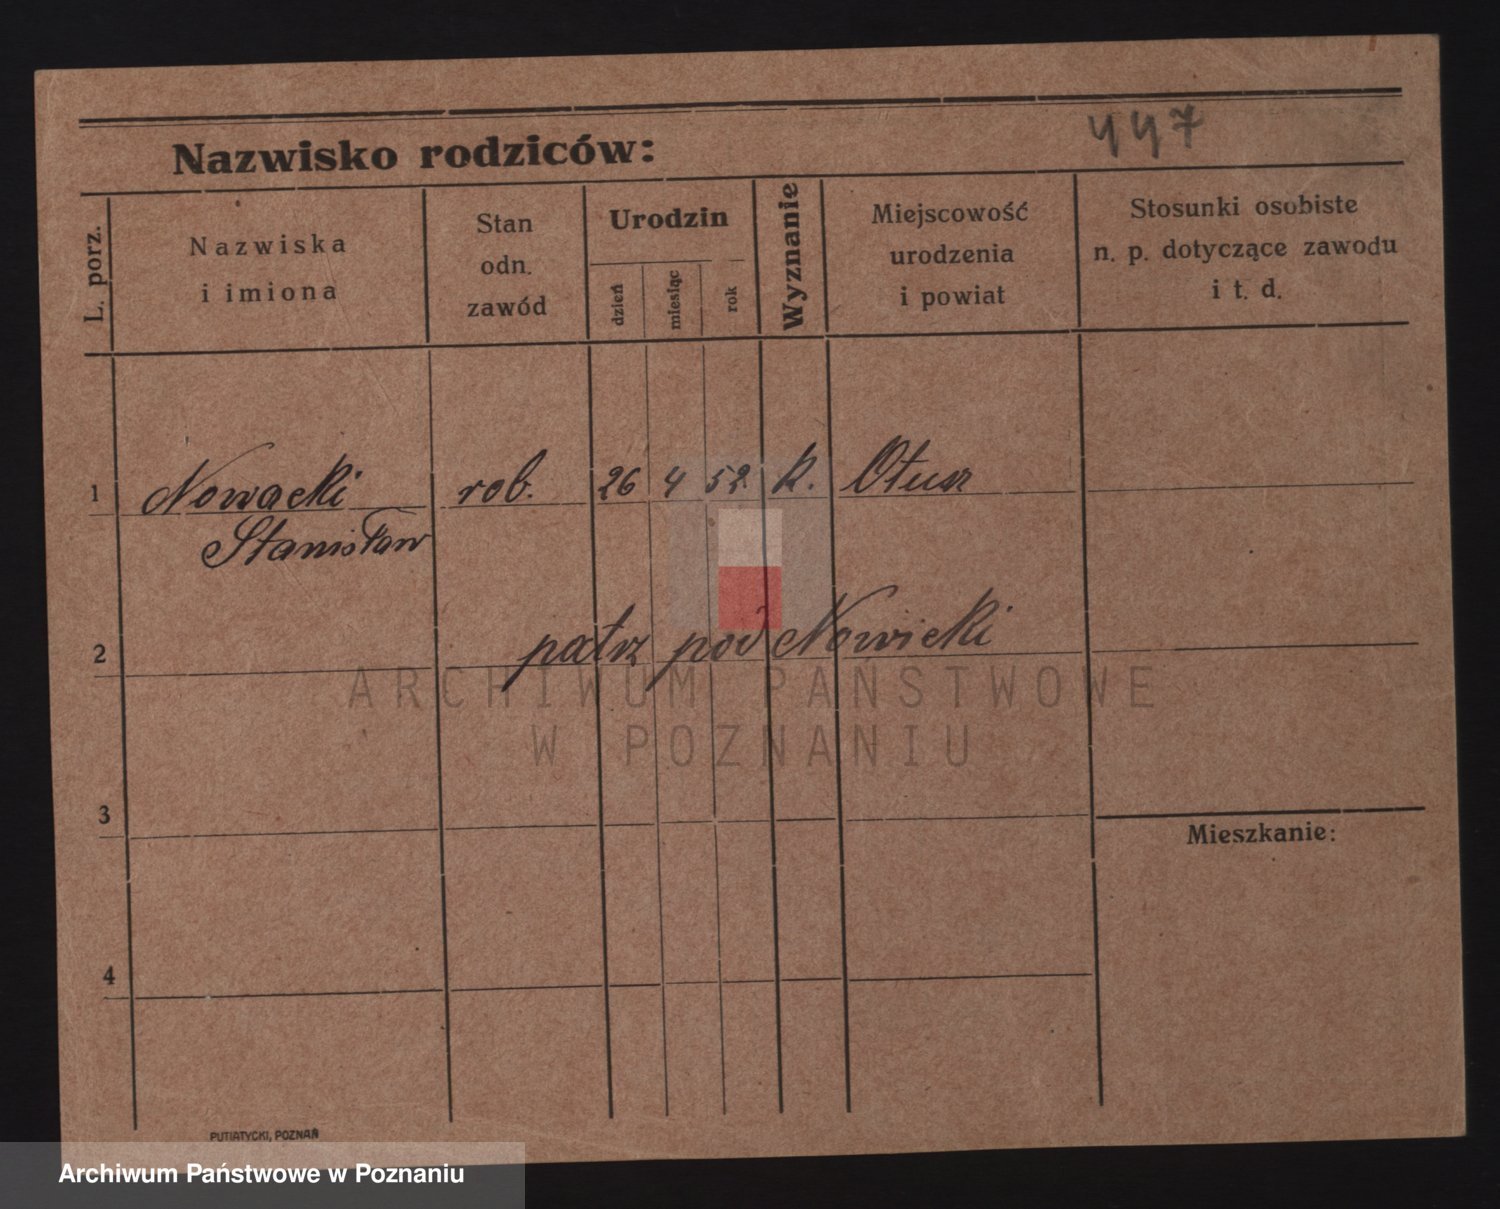 447
Nazwisko rodziców:
L. porz.
Nazwiska
i imiona
Stan
odn.
zawód
Urodzin
dzień
miesiąc
rok
Wyznanie
Miejscowość
urodzenia
i powiat
Stosunki osobiste
n. p. dotyczące zawodu
i t. d.
1 Nowacki rob. 26 4 52. k. Otusz
Stanisław
2 patrz pod Nowicki
ARCHIWUM PAŃSTWOWE
W POZNANIU
3
Mieszkanie:
4
PUTIATYCKI, POZNAŃ
Archiwum Państwowe w Poznaniu